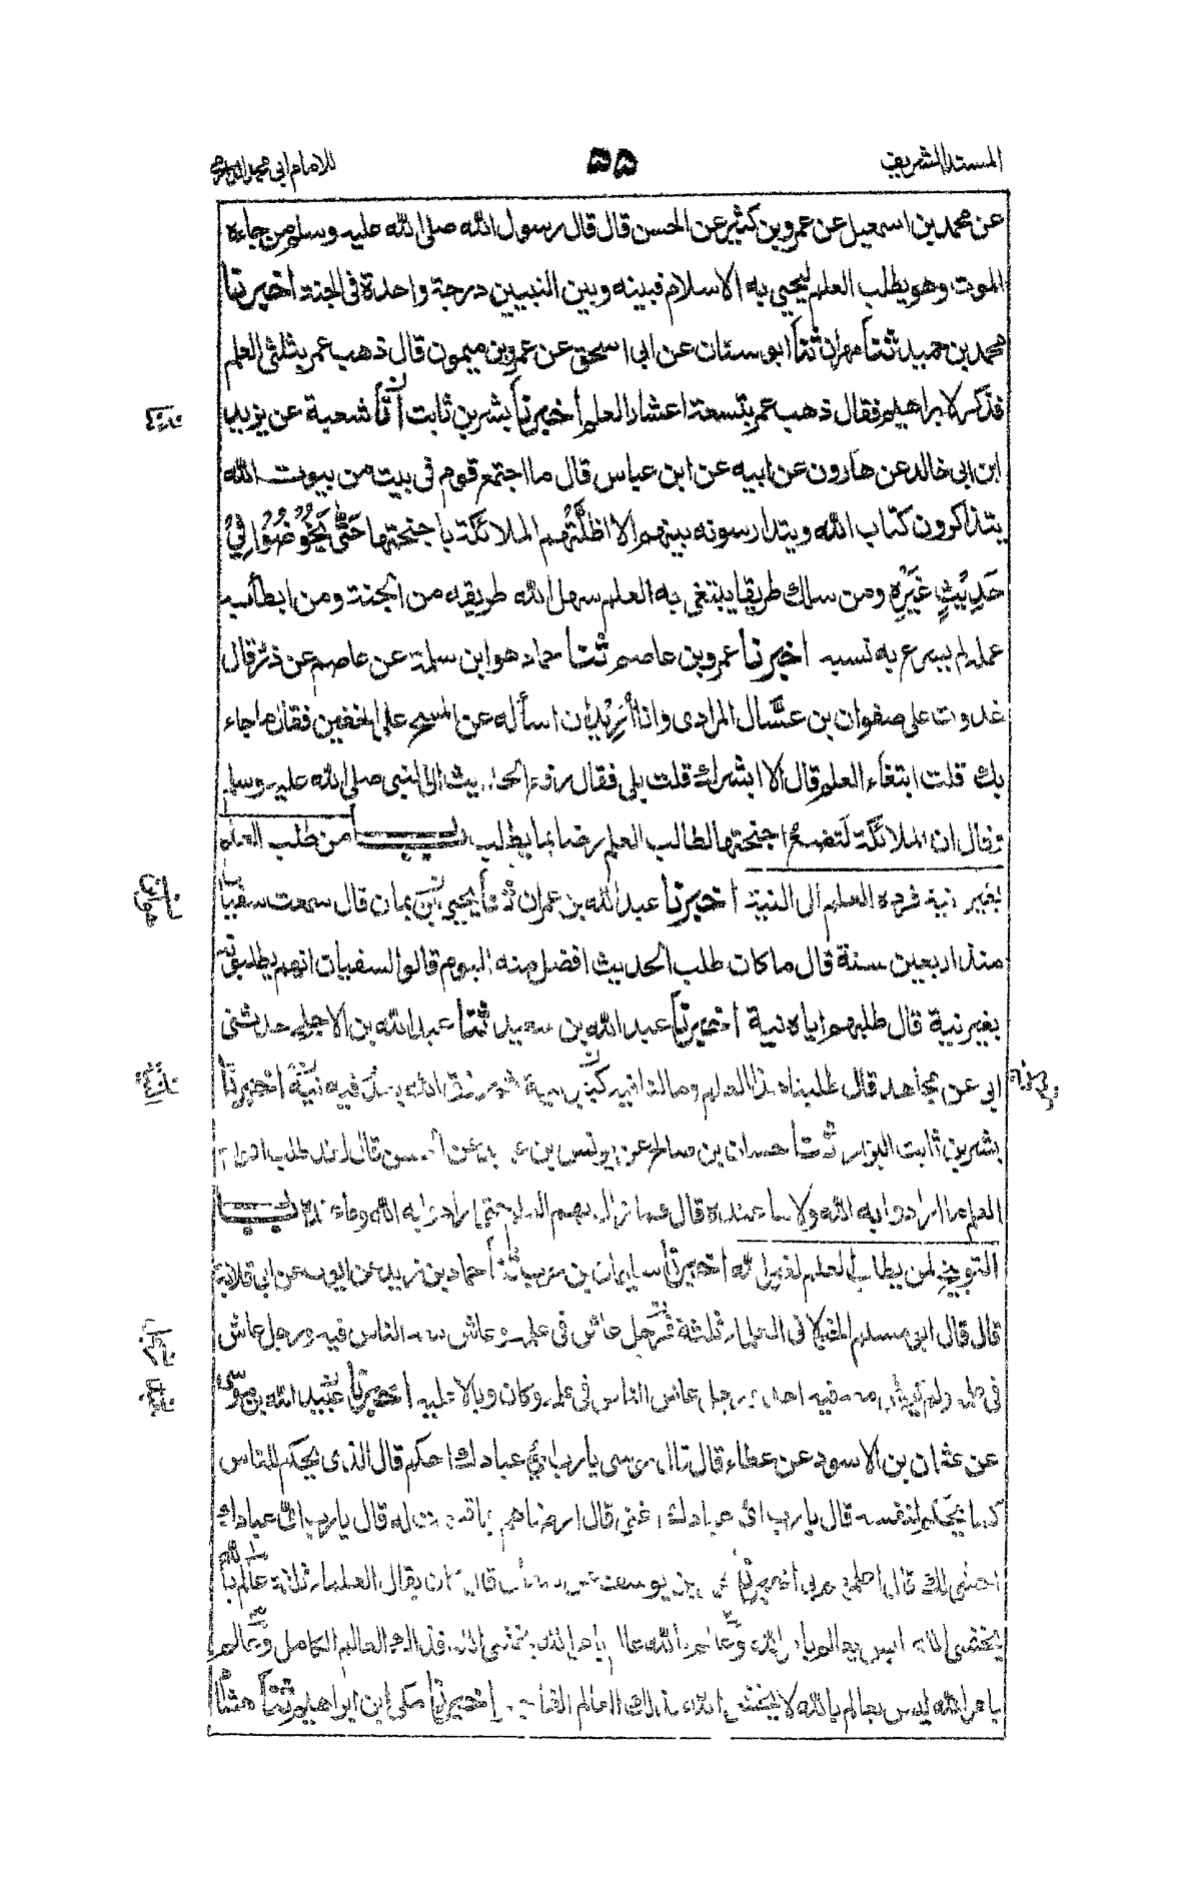 المسند الشريف
٥٥
للامام ابى محمد الدارمى
عن محمد بن اسمعيل عن عمرو بن كثير عن الحسن قال قال رسول الله صلى الله عليه وسلم من جاءه
الموت وهو يطلب العلم ليحيى به الاسلام فبينه وبين النبيين درجة واحدة فى الجنة اخبرنا
محمد بن حميد ثنا مهران ثنا ابو سنان عن ابى اسحق عن عمرو بن ميمون قال ذهب عمر بثلثى العلم
فذكر لابراهيم فقال ذهب عمر بتسعة اعشار العلم اخبرنا بشر بن ثابت انا شعبة عن يزيد
ابن ابى خالد عن هارون عن ابيه عن ابن عباس قال ما اجتمع قوم فى بيت من بيوت الله
يتذاكرون كتاب الله ويتدارسونه بينهم الا اظلَّتهم الملائكة باجنحتها حَتّٰى يَخُوْضُوْا فِيْ
حَدِيْثٍ غَيْرِهٖ ومن سلك طريقا يبتغى به العلم سهل الله طريقه من الجنة ومن ابطأ به
عمله لم يسرع به نسبه اخبرنا عمرو بن عاصم ثنا حماد هو ابن سلمة عن عاصم عن زر قال
غدوت على صفوان بن عسّال المرادى وانا أُرِيْدُ ان اسأله عن المسح على الخفين فقال ما جاء
بك قلت ابتغاء العلم قال الا ابشرك قلت بلى فقال رفع الحديث الى النبى صلى الله عليه وسلم
وقال ان الملائكة لَتضعُ اجنحتها لطالب العلم رضا بما يطلب باب من طلب العلم
بغير نية فرده العلم الى النية اخبرنا عبد الله بن عمران ثنا يحيى بن يمان قال سمعت سفيان
منذ اربعين سنة قال ما كان طلب الحديث افضل منه اليوم قالوا لسفيان انهم يطلبونه
بغير نية قال طلبهم اياه نية اخبرنا عبد الله بن سعيد ثنا عبد الله بن الاجلح حدثنى
ابى عن مجاهد قال طلبنا هذا العلم وما لنا فيه كبير نية ثم رزق الله بعد فيه نيّة اخبرنا
بشر بن ثابت البزار ثنا حسان بن عن يونس بن عبيد عن الحسن قال لقد طلب اقوام
العلم ما ارادوا به الله ولا ما عنده قال فما زال بهم العلم حتى ارادوا به الله وما عنده باب
التوبيخ لمن يطلب العلم لغير الله اخبرنا سليمان بن حرب ثنا حماد بن زيد عن ايوب عن ابى قلابة
قال قال ابو مسلم الخولانى العلماء ثلثة فرجل عاش فى علمه وعاش معه الناس فيه ورجل عاش
فى علمه ولم يعش معه فيه احد ورجل عاش الناس فى علمه وكان وبالا عليه اخبرنا عبيد الله بن موسى
عن عثمان بن الاسود عن عطاء قال قال موسى يا رب اىّ عبادك احكم قال الذى يحكم للناس
كما يحكم لنفسه قال يا رب اى عبادك اغنى قال ارضاهم بما قسمت له قال يا رب اىّ عبادك
اخشى لك قال اعلمهم بى اخبرنا بن يوسف عن سفيان قال كان يقال العلماء ثلثة عالم بالله
يخشى الله ليس بعالم بامر الله وعالم بالله عالم بامر الله يخشى الله فذاك العالم الكامل وعالم
بامر الله ليس بعالم بالله لا يخشى الله فذلك العالم الفاجر اخبرنا مكى ابن ابراهيم ثنا هشام